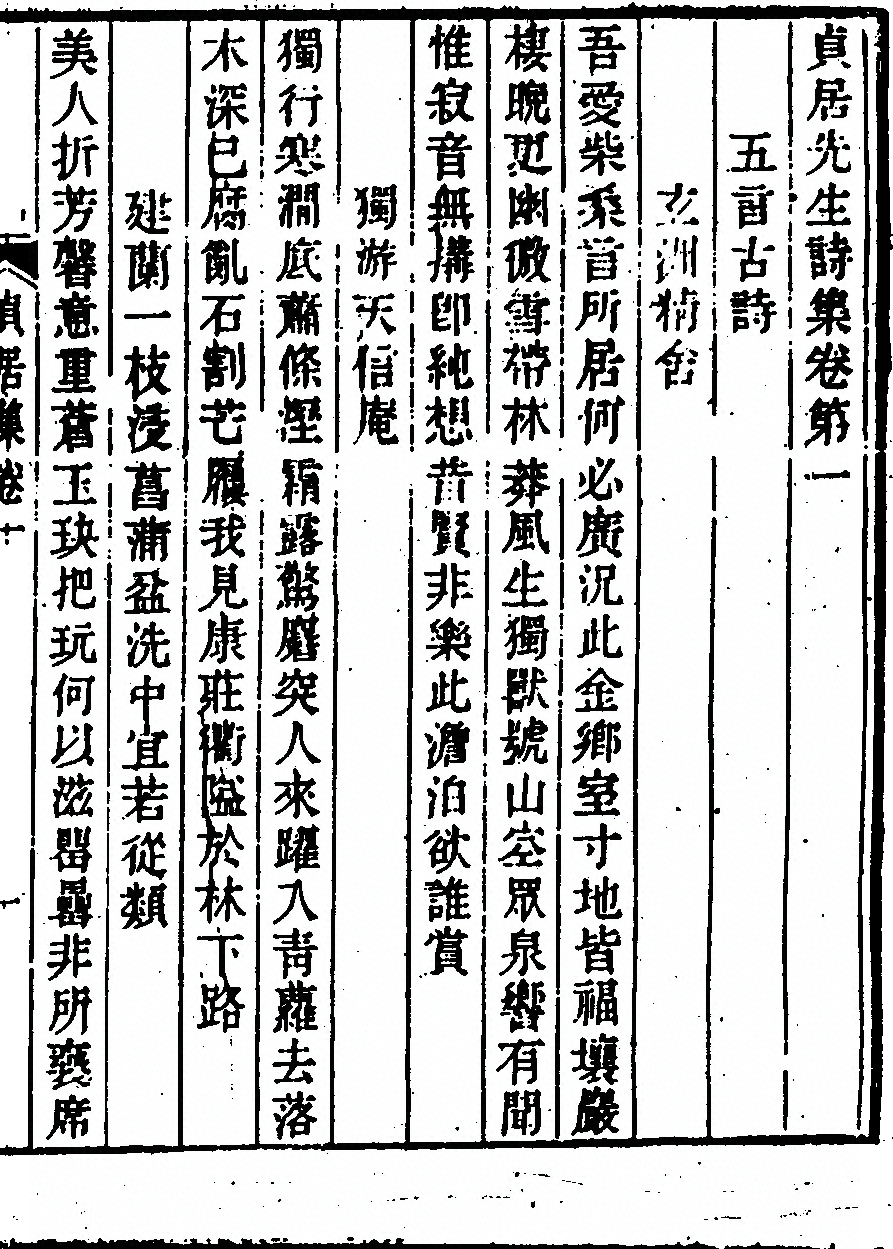 貞居先生詩集卷第一
五言古詩
玄洲精舍
吾愛柴桑首所居何必廣況此金鄉室寸地皆福壤巖
棲晚更幽微雪帶林莽風生獨獸號山空眾泉響有聞
惟寂音無搆卽純想昔賢非樂此澹泊欲誰賞
獨游天信庵
獨行寒澗底蕭條煙霜露驚麏突人來躍入青蘿去落
木深已腐亂石割芒屨我見康莊衢隘於林下路
建蘭一枝浸菖蒲盆洗中宜若從類
美人折芳馨意重蒼玉玦把玩何以滋罌罍非所褻席
貞居集卷一